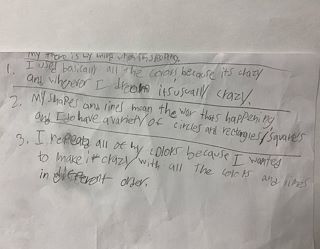 My theme is my mind when I'm sleeping.
1. I used basically all the colors because its crazy
and whenever I dream its usually crazy.
2. My shapes and lines mean the war thats happening
and I do have a variety of circles and rectangles/squares
3. I repeated all of my colors because I wanted
to make it crazy with all the colors and lines
in different order.